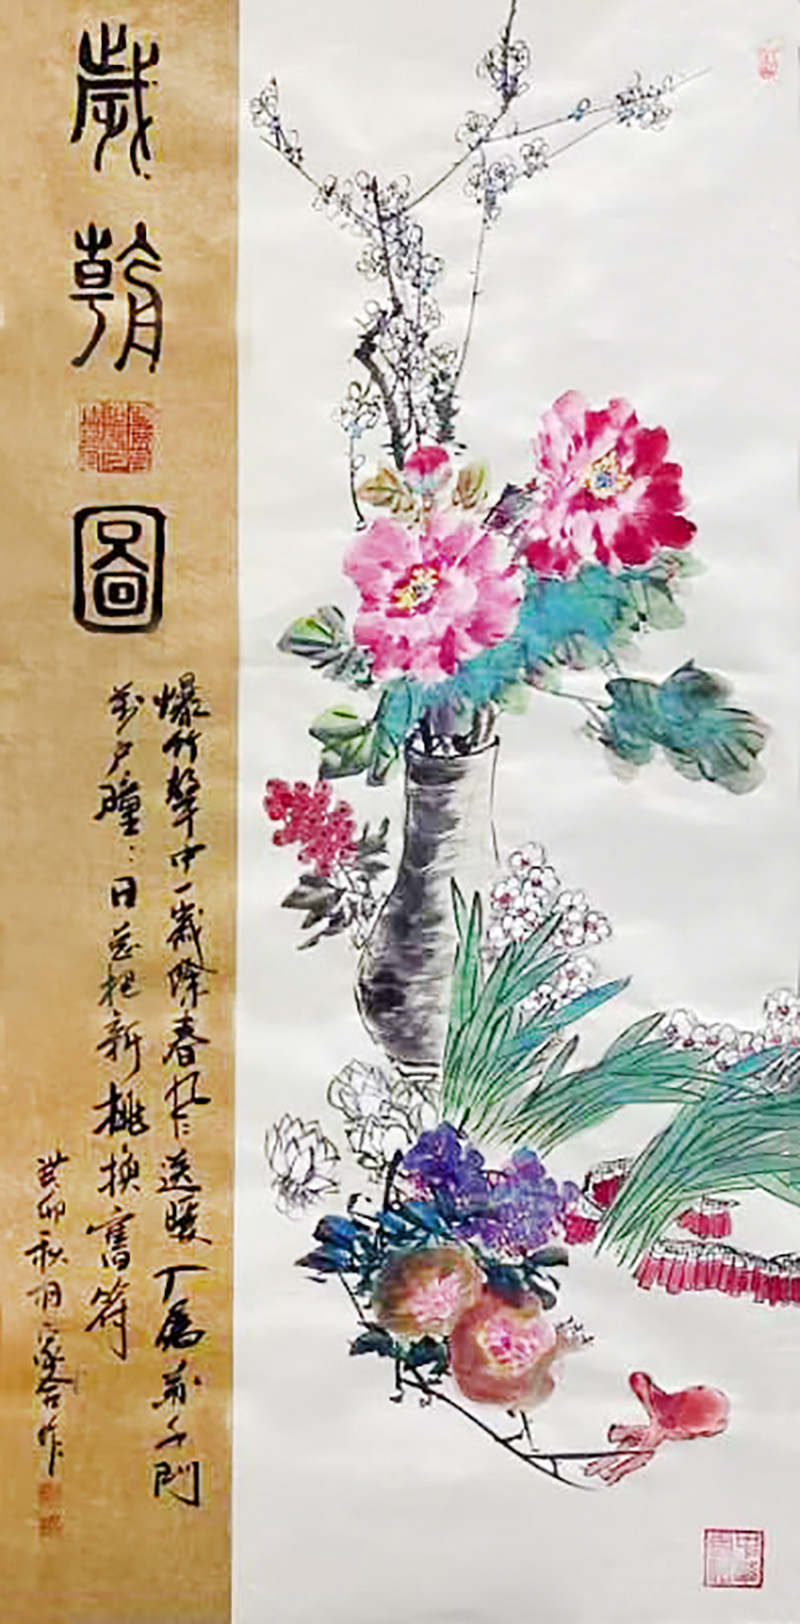 歲朝圖
爆竹聲中一歲除春风送暖入屠蘇千門
萬戶瞳瞳日总把新桃換舊符
癸卯秋月家合作